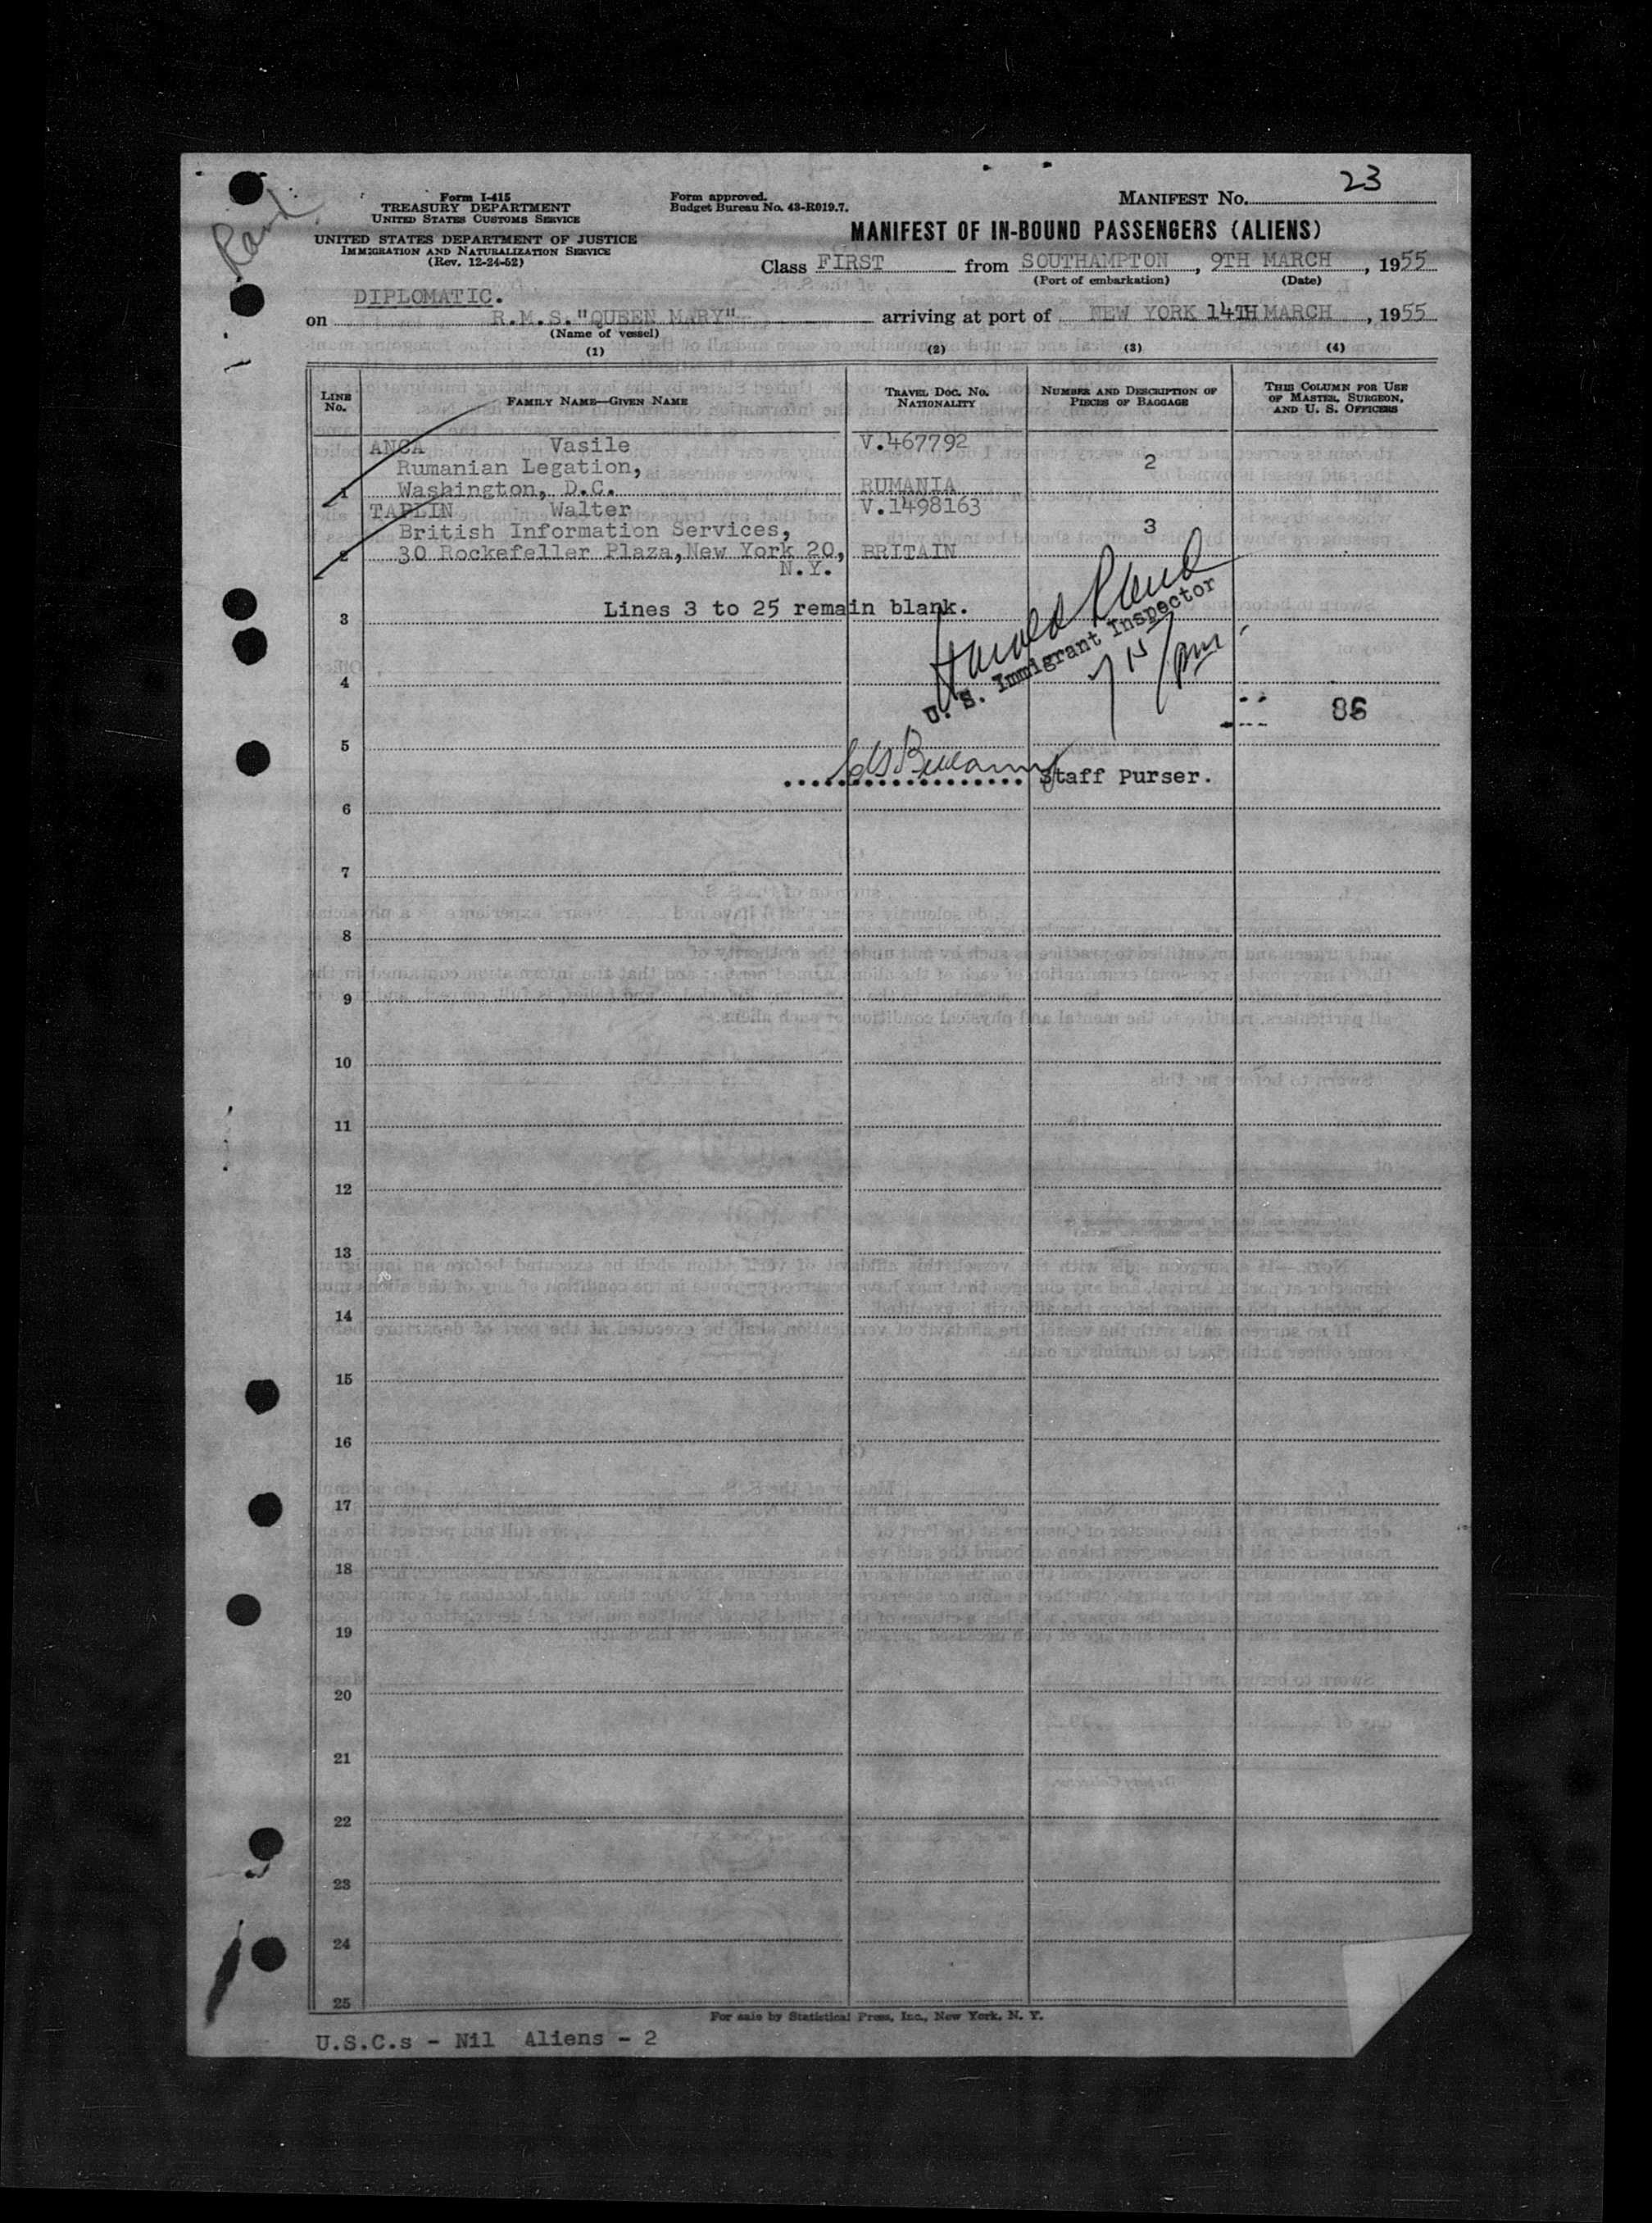 23
Form I-415
TREASURY DEPARTMENT
UNITED STATES CUSTOMS SERVICE
Form approved.
Budget Bureau No. 43-R019.7.
MANIFEST NO.
UNITED STATES DEPARTMENT OF JUSTICE
IMMIGRATION AND NATURALIZATION SERVICE
(Rev. 12-24-52)
MANIFEST OF IN-BOUND PASSENGERS (ALIENS)
Class FIRST from SOUTHAMPTON, 9TH MARCH, 1955
(Port of embarkation) (Date)
DIPLOMATIC.
on R.M.S."QUEEN MARY" arriving at port of NEW YORK 14TH MARCH, 1955
(Name of vessel)
(1) (2) (3) (4)
LINE NO. FAMILY NAME—GIVEN NAME TRAVEL DOC. NO. NATIONALITY NUMBER AND DESCRIPTION OF PIECES OF BAGGAGE THIS COLUMN FOR USE OF MASTER, SURGEON, AND U. S. OFFICERS
ANCA Vasile V.467792
Rumanian Legation, 2
1 Washington, D.C. RUMANIA
TAPLIN Walter V.1498163
British Information Services, 3
2 30 Rockefeller Plaza,New York 20, BRITAIN
N.Y.
3 Lines 3 to 25 remain blank.
Harold
U. S. Immigrant Inspector
4
86
5
Staff Purser.
6
7
8
9
10
11
12
13
14
15
16
17
18
19
20
21
22
23
24
25
For sale by Statistical Press, Inc., New York, N. Y.
U.S.C.s - Nil Aliens - 2